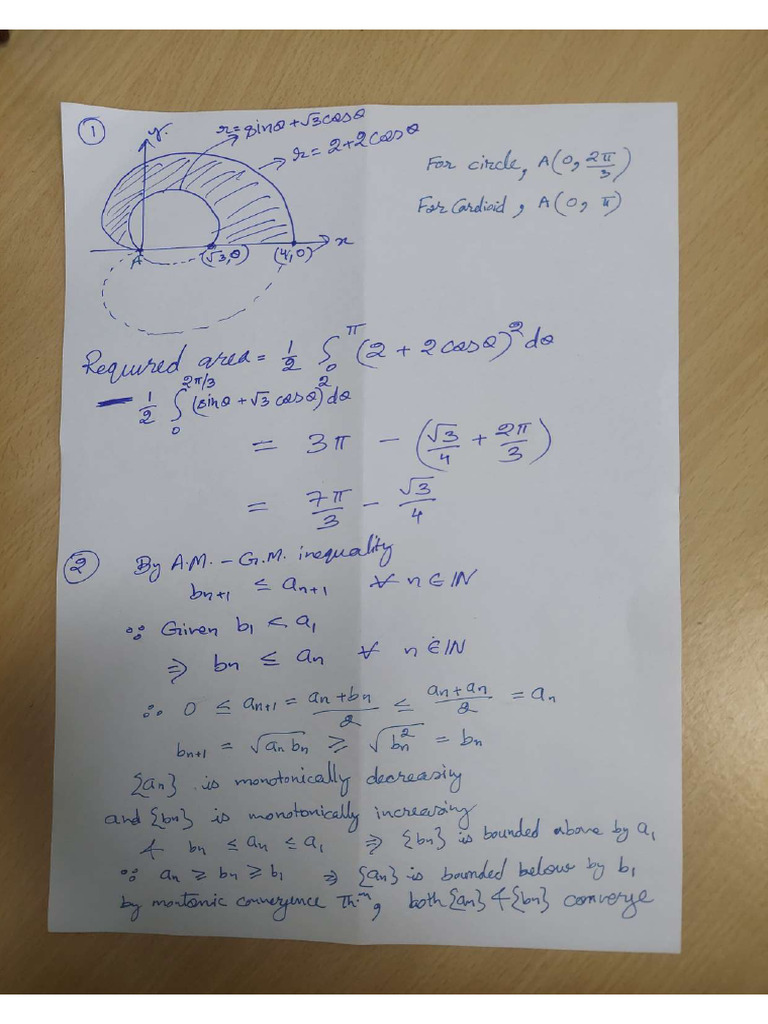 ①
y
r = sinθ + √3 cosθ
r = 2 + 2 cosθ
A
(√3, 0)
(4, 0)
x
For circle, A(0, 2π/3)
For Cardioid, A(0, π)
Required area = 1/2 ∫₀^π (2 + 2 cosθ)² dθ
− 1/2 ∫₀^{2π/3} (sinθ + √3 cosθ)² dθ
= 3π − (√3/4 + 2π/3)
= 7π/3 − √3/4
② By A.M. – G.M. inequality
bₙ₊₁ ≤ aₙ₊₁ ∀ n ∈ IN
∵ Given b₁ < a₁
⇒ bₙ ≤ aₙ ∀ n ∈ IN
∴ 0 ≤ aₙ₊₁ = (aₙ + bₙ)/2 ≤ (aₙ + aₙ)/2 = aₙ
bₙ₊₁ = √(aₙ bₙ) ≥ √(bₙ²) = bₙ
{aₙ} is monotonically decreasing
and {bₙ} is monotonically increasing
& bₙ ≤ aₙ ≤ a₁ ⇒ {bₙ} is bounded above by a₁
∵ aₙ ≥ bₙ ≥ b₁ ⇒ {aₙ} is bounded below by b₁
by montonic convergence Th.ᵐ, both {aₙ} & {bₙ} converge